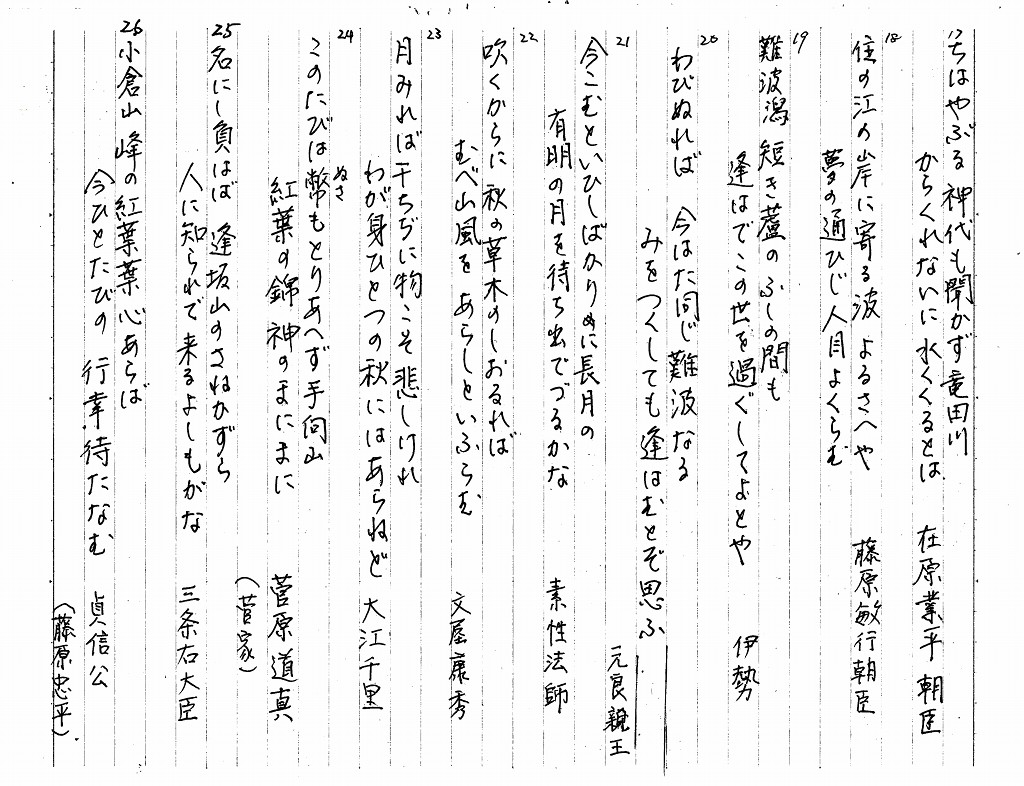 17
ちはやぶる 神代も聞かず竜田川
からくれないに水くくるとは 在原業平朝臣
18
住の江の岸に寄る波 よるさへや
夢の通ひじ人目よくらむ 藤原敏行朝臣
19
難波潟 短き蘆の ふしの間も
逢はでこの世を過ぐしてよとや 伊勢
20
わびぬれば 今はた同じ難波なる
みをつくしても逢はむとぞ思ふ
元良親王
21
今こむといひしばかりめに長月の
有明の月を待ち出でづるかな 素性法師
22
吹くからに秋の草木のしおるれば
むべ山風を あらしといふらむ 文屋康秀
23
月みれば千ぢに物こそ悲しけれ
わが身ひとつの秋にはあらねど 大江千里
24
このたびは幣もとりあへず手向山
ぬさ
紅葉の錦 神のまにまに 菅原道真
(菅家)
25
名にし負はば 逢坂山のさねかずら
人に知られで来るよしもがな 三条右大臣
26
小倉山 峰の紅葉葉 心あらば
今ひとたびの 行幸待たなむ 貞信公
(藤原忠平).